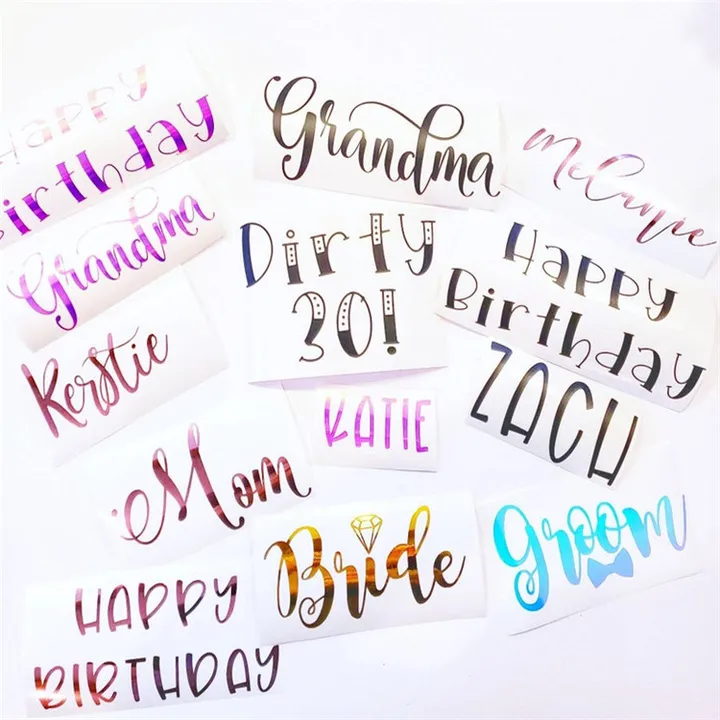 Happy
Birthday
Grandma
Melanie
Grandma
Dirty
30!
Happy
Birthday
Kerstie
KATIE
ZACH
Mom
Bride
Groom
HAPPY
BIRTHDAY